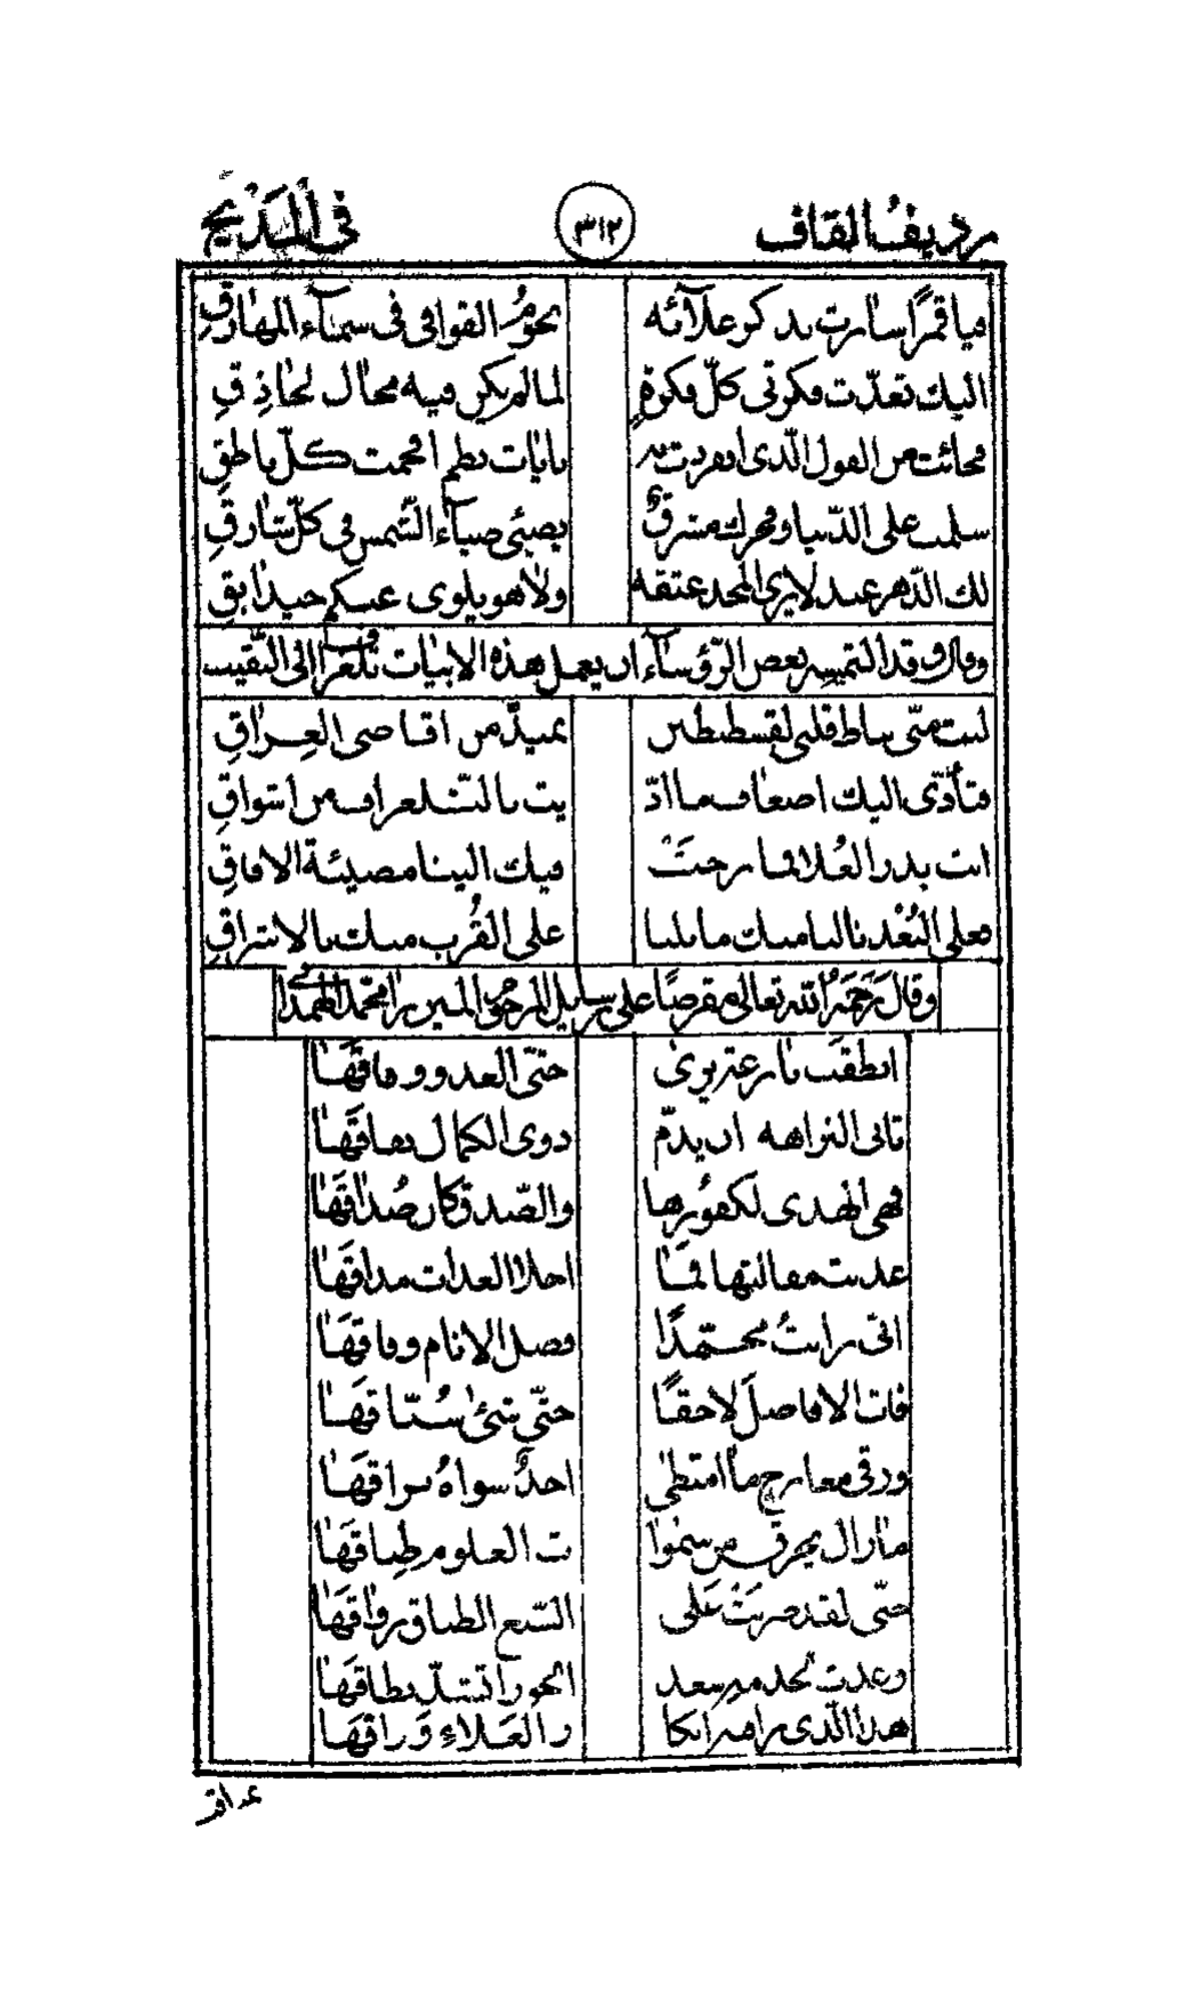 رديف القاف ٣١٢ في المديح
فيا قمرًا سارت بذكر علائه نجوم القوافي في سماء المهارقِ
اليك تعدّت فكرتي كلّ فكرةٍ لما لم يكن فيه مجال لحاذقِ
فجائت من القول الّذي افردت به بايات نظم افحمت كلّ ناطقِ
سلمت على الدّنيا وفخرك مشرقٌ يضيئ ضياء الشّمس في كلّ شارقِ
لك الدّهر عبد لا يرى المجد عتقه ولا هو يلوى عنكم جيد ابقِ
وقال وقد التمسه بعض الرّؤساء ان يعمل هذه الابيات تلغرافا الى النّقيب
ليت منّي نياط قلبي لقسطنطين بمتدّ من اقاصي العراقِ
فتأدّى اليك اضعاف ما ادّ يت بالتّلغراف من اشواقِ
انت بدر العُلا لقا رحبتَ فيك الينا مضيئة الافاقِ
فعلى البُعْد نالنا منك ما نلنا على القُرب منك بالاشراقِ
وقال رَحمَهُ الله تعالى مقرضًا على رسايل المرحوم الميرزا محمّد الهمدانيّ
حتّى العدو وفاقهَا
تابى النزاهه ان يذمّ ذوى الكمال نفاقهَا
فهى الهدى لكفورها والصّدق كان صُداقهَا
عذبت مقالتها لمَا احلا العداة مذاقهَا
انّى رايتُ محمّدًا فضل الانام وفاقهَا
فات الافاضلَ لاحقًا حتّى شئى سُبّاقهَا
ورقى معارج ما امتطى احدٌ سواهُ براقهَا
ما زال يخرق من سموا ت العلوم طباقهَا
حتّى لقد ضربَتْ عَلى السّبع الطباق رواقهَا
وغدت لخدمه سعد الجوزآ تشدّ نطاقهَا
هذا الّذى رامه انكا ر العلاءِ وراقهَا